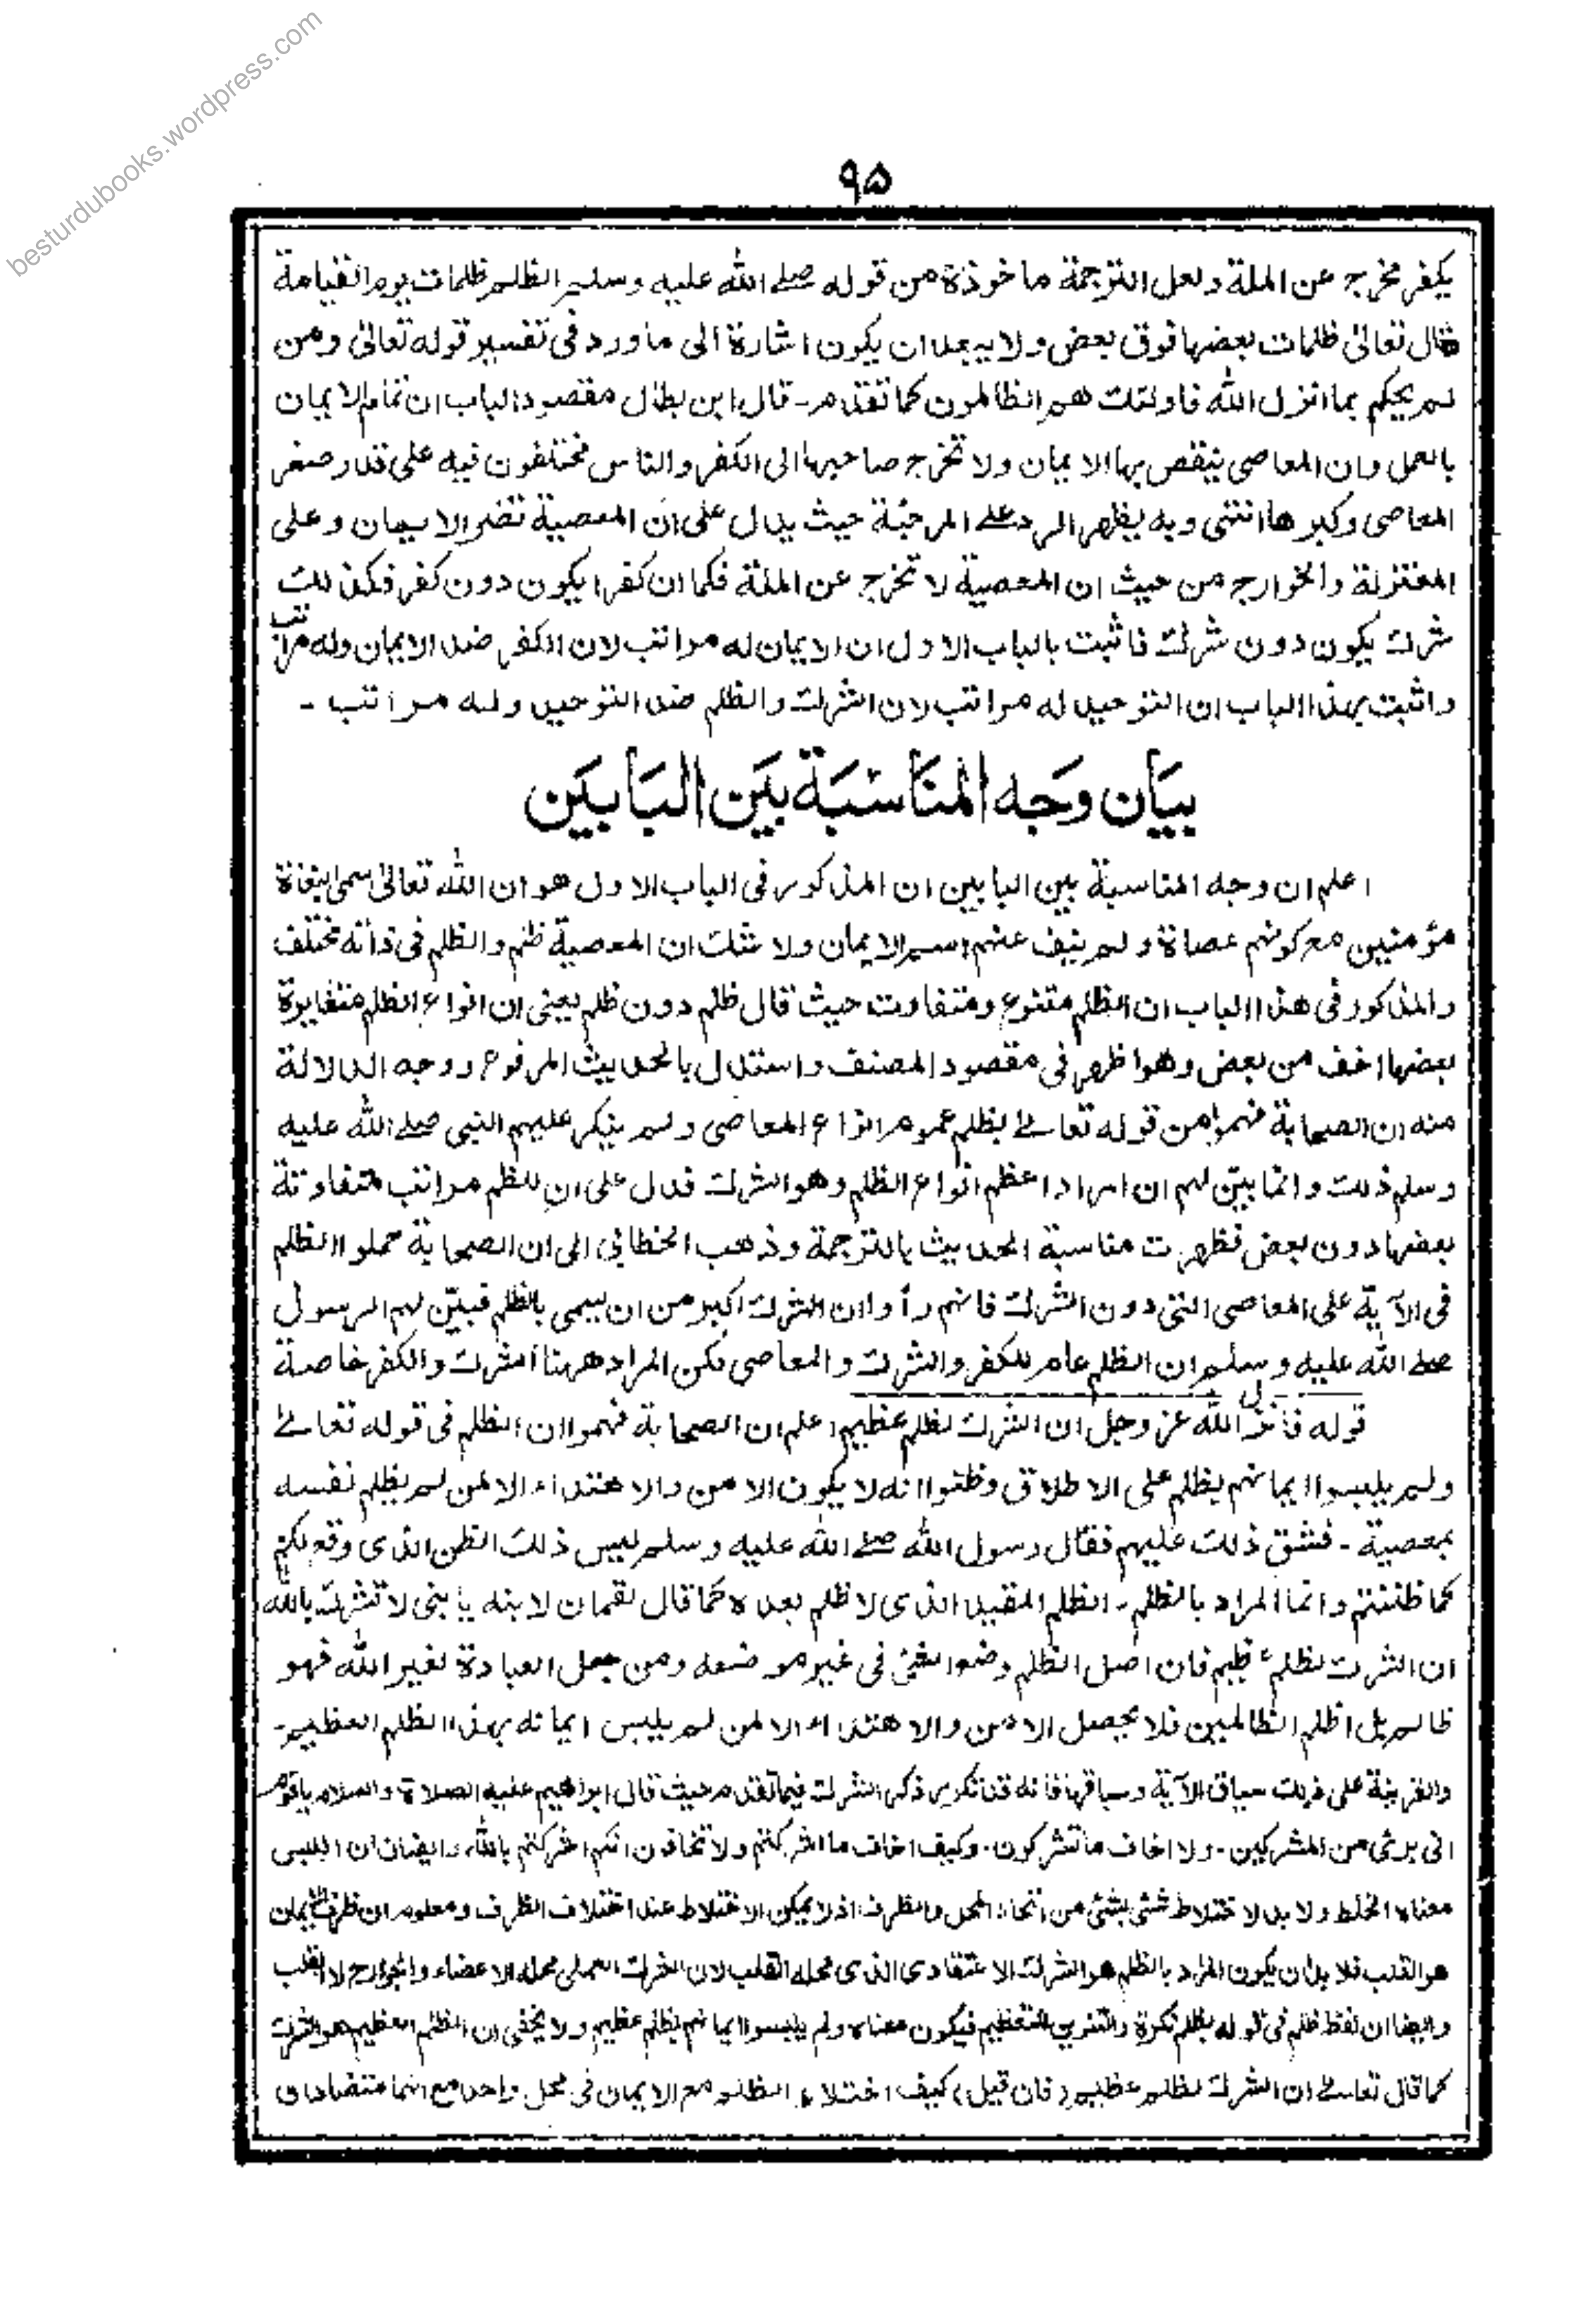 besturdubooks.wordpress.com
۹۵
يكفر مخرج عن الملة ولعل الترجمة ماخوذة من قوله صلے الله عليه وسلم الظلم ظلمات يوم القيامة
قال تعالیٰ ظلمات بعضها فوق بعض ولا يبعد ان يكون اشارة الى ما ورد فی تفسير قوله تعالیٰ ومن
لم يحكم بما انزل الله فاولئك هم الظالمون كما تقدم ـ قال ابن بطال مقصود الباب ان تمام الايمان
بالعمل وان المعاصی ينقص بها الايمان ولا تخرج صاحبها الى الكفر والناس مختلفون فيه على قدر صغر
المعاصی وكبرها انتهى وبه يظهر الرد علے المرجئة حيث يدل على ان المعصية تضر الايمان وعلى
المعتزلة والخوارج من حيث ان المعصية لا تخرج عن الملة فكما ان كفرا يكون دون كفر فكذلك
شرك يكون دون شرك فاثبت بالباب الاول ان الايمان له مراتب لان الكفر ضد الايمان وله مراتب
واثبت بهذا الباب ان التوحيد له مراتب لان الشرك والظلم ضد التوحيد وله مراتب ـ
بيَان وَجه المنَاسَبَة بيَن البَابيَن
اعلم ان وجه المناسبة بين البابين ان المذكور فی الباب الاول هو ان الله تعالیٰ سمى البغاة
مؤمنين مع كونهم عصاة ولم ينف عنهم اسم الايمان ولا شك ان المعصية ظلم والظلم فی ذاته مختلف
والمذكور فی هذا الباب ان الظلم متنوع ومتفاوت حيث قال ظلم دون ظلم يعنی ان انواع الظلم متغايرة
بعضها اخف من بعض وهو اظهر فی مقصود المصنف واستدل بالحديث المرفوع ووجه الدلالة
منه ان الصحابة فهموا من قوله تعالے بظلم عموم انواع المعاصی ولم ينكر عليهم النبی صلے الله عليه
وسلم ذلك وانما بيّن لهم ان المراد اعظم انواع الظلم وهو الشرك فدل على ان للظلم مراتب متفاوتة
بعضها دون بعض فظهرت مناسبة الحديث بالترجمة وذهب الخطابی الى ان الصحابة حملوا الظلم
فی الآية على المعاصی التی دون الشرك فانهم رأوا ان الشرك اكبر من ان يسمى بالظلم فبيّن لهم الرسول
صلے الله عليه وسلم ان الظلم عام للكفر والشرك والمعاصی لكن المراد ههنا الشرك والكفر خاصة
قوله فانزل الله عز وجل ان الشرك لظلم عظيم اعلم ان الصحابة فهموا ان الظلم فی قوله تعالے
ولم يلبسوا ايمانهم بظلم على الاطلاق وظنوا انه لا يكون الامن والاهتداء الا لمن لم يظلم نفسه
بمعصية ـ فشق ذلك عليهم فقال رسول الله صلے الله عليه وسلم ليس ذلك الظن الذی وقع لكم
كما ظننتم وانما المراد بالظلم ـ الظلم المقيد الذی لا ظلم بعده كما قال لقمان لابنه يا بنی لا تشرك بالله
ان الشرك لظلم عظيم فان اصل الظلم وضع الشئ فی غير موضعه ومن جعل العبادة لغير الله فهو
ظالم بل اظلم الظالمين فلا يحصل الامن والاهتداء الا لمن لم يلبس ايمانه بهذا الظلم العظيم ـ
والقرينة على ذلك سياق الآية وسباقها فانه قد تكرر ذكر الشرك فيما تقدم حيث قال ابراهيم عليه الصلاة والسلام يا قوم
انی برئ من المشركين ـ ولا اخاف ما تشركون ـ وكيف اخاف ما اشركتم ولا تخافون انكم اشركتم بالله وايضا فان اللبس
معناه الخلط ولا بد لاختلاط شئ بشئ من اتحاد المحل والظرف اذ لا يمكن الاختلاط عند اختلاف الظرف ومعلوم ان ظرف الايمان
هو القلب فلا بد ان يكون المراد بالظلم هو الشرك الاعتقادی الذی محله القلب لان الشرك العملی محله الاعضاء والجوارح لا القلب
وايضا ان لفظ ظلم فی قوله بظلم نكرة والتنوين للتعظيم فيكون معناه ولم يلبسوا ايمانهم بظلم عظيم ولا يخفى ان الظلم العظيم هو الشرك
كما قال تعالے ان الشرك لظلم عظيم (فان قيل) كيف اختلاط الظلم مع الايمان فی محل واحد مع انهما متضادان